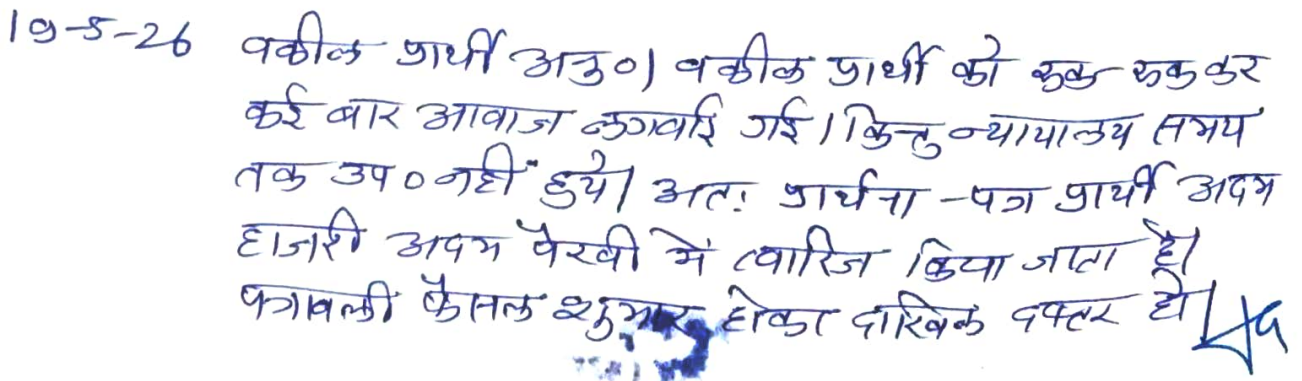 19-5-26 वकील प्रार्थी अनु०। वकील प्रार्थी को रुक-रुक कर
कई बार आवाज लगवाई गई। किन्तु न्यायालय समय
तक उप० नहीं हुये। अतः प्रार्थना-पत्र प्रार्थी अदम
हाजरी अदम पैरवी में खारिज किया जाता है।
पत्रावली फैसल शुमार होकर दाखिल दफ्तर हो।